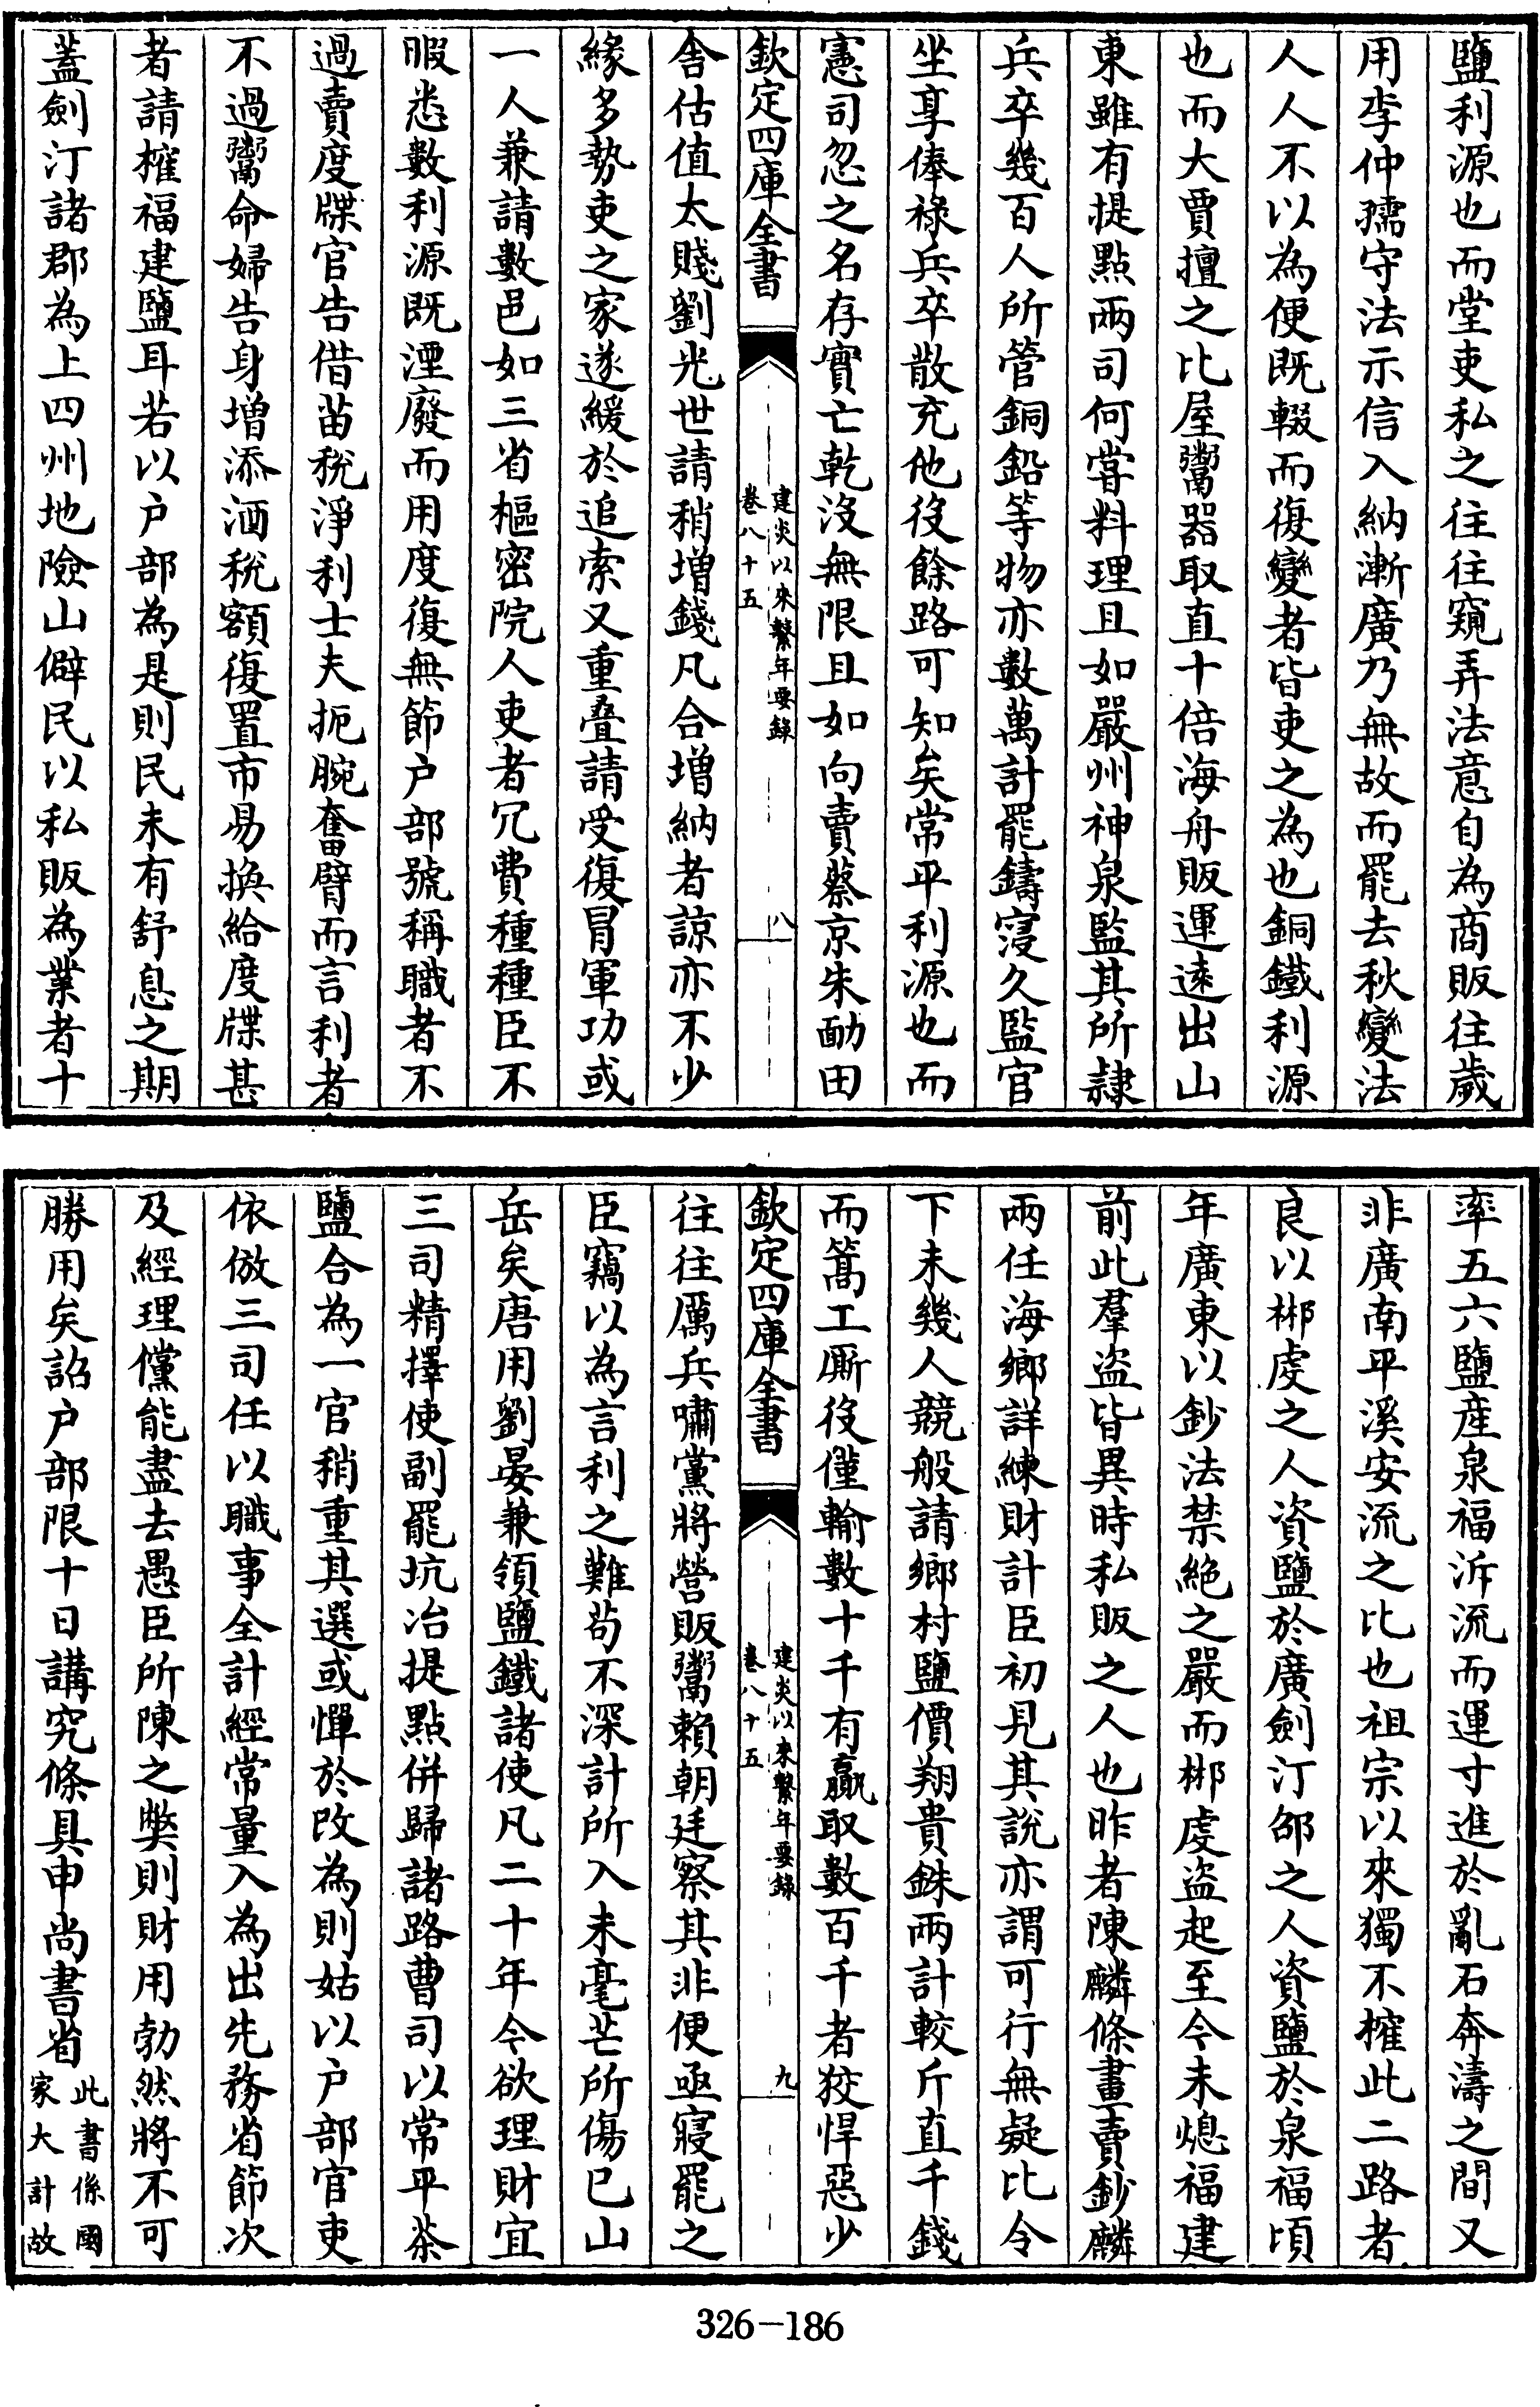 鹽利源也而堂吏私之往往窺弄法意自為商販往歲
用李仲孺守法示信入納漸廣乃無故而罷去秋變法
人人不以為便既輟而復變者皆吏之為也銅鐵利源
也而大賈擅之比屋鬻器取直十倍海舟販運遠出山
東雖有提點兩司何甞料理且如嚴州神泉監其所隷
兵卒幾百人所管銅鉛等物亦數萬計罷鑄寖久監官
坐享俸祿兵卒散充他役餘路可知矣常平利源也而
憲司忽之名存實亡乾沒無限且如向賣蔡京朱勔田
欽定四庫全書
建炎以來繫年要錄
卷八十五
八
舎估值太賤劉光世請稍增錢凡合增納者諒亦不少
緣多勢吏之家遂緩於追索又重疊請受復冒軍功或
一人兼請數邑如三省樞密院人吏者冗費種種臣不
暇悉數利源既湮廢而用度復無節户部號稱職者不
過賣度牒官告借苗稅淨利士夫扼腕奮臂而言利者
不過鬻命婦告身增添酒稅額復置市易換給度牒甚
者請榷福建鹽耳若以户部為是則民未有舒息之期
蓋劍汀諸郡為上四州地險山僻民以私販為業者十
率五六鹽産泉福泝流而運寸進於亂石奔濤之間又
非廣南平溪安流之比也祖宗以來獨不榷此二路者
良以郴䖍之人資鹽於廣劍汀邵之人資鹽於泉福頃
年廣東以鈔法禁絶之嚴而郴䖍盜起至今未熄福建
前此羣盜皆異時私販之人也昨者陳麟條畫賣鈔麟
兩任海鄉詳練財計臣初見其說亦謂可行無疑比令
下未幾人競般請鄉村鹽價翔貴銖兩計較斤直千錢
而篙工厮役僅輸數十千有贏取數百千者狡悍惡少
欽定四庫全書
建炎以來繫年要錄
卷八十五
九
往往厲兵嘯黨將營販鬻賴朝廷察其非便亟寢罷之
臣竊以為言利之難茍不深計所入未毫芒所傷已山
岳矣唐用劉晏兼領鹽鐵諸使凡二十年今欲理財宜
三司精擇使副罷坑冶提點併歸諸路曹司以常平茶
鹽合為一官稍重其選或憚於改為則姑以户部官吏
依倣三司任以職事全計經常量入為出先務省節次
及經理儻能盡去愚臣所陳之弊則財用勃然將不可
勝用矣詔户部限十日講究條具申尚書省此書係國
家大計故
326—186